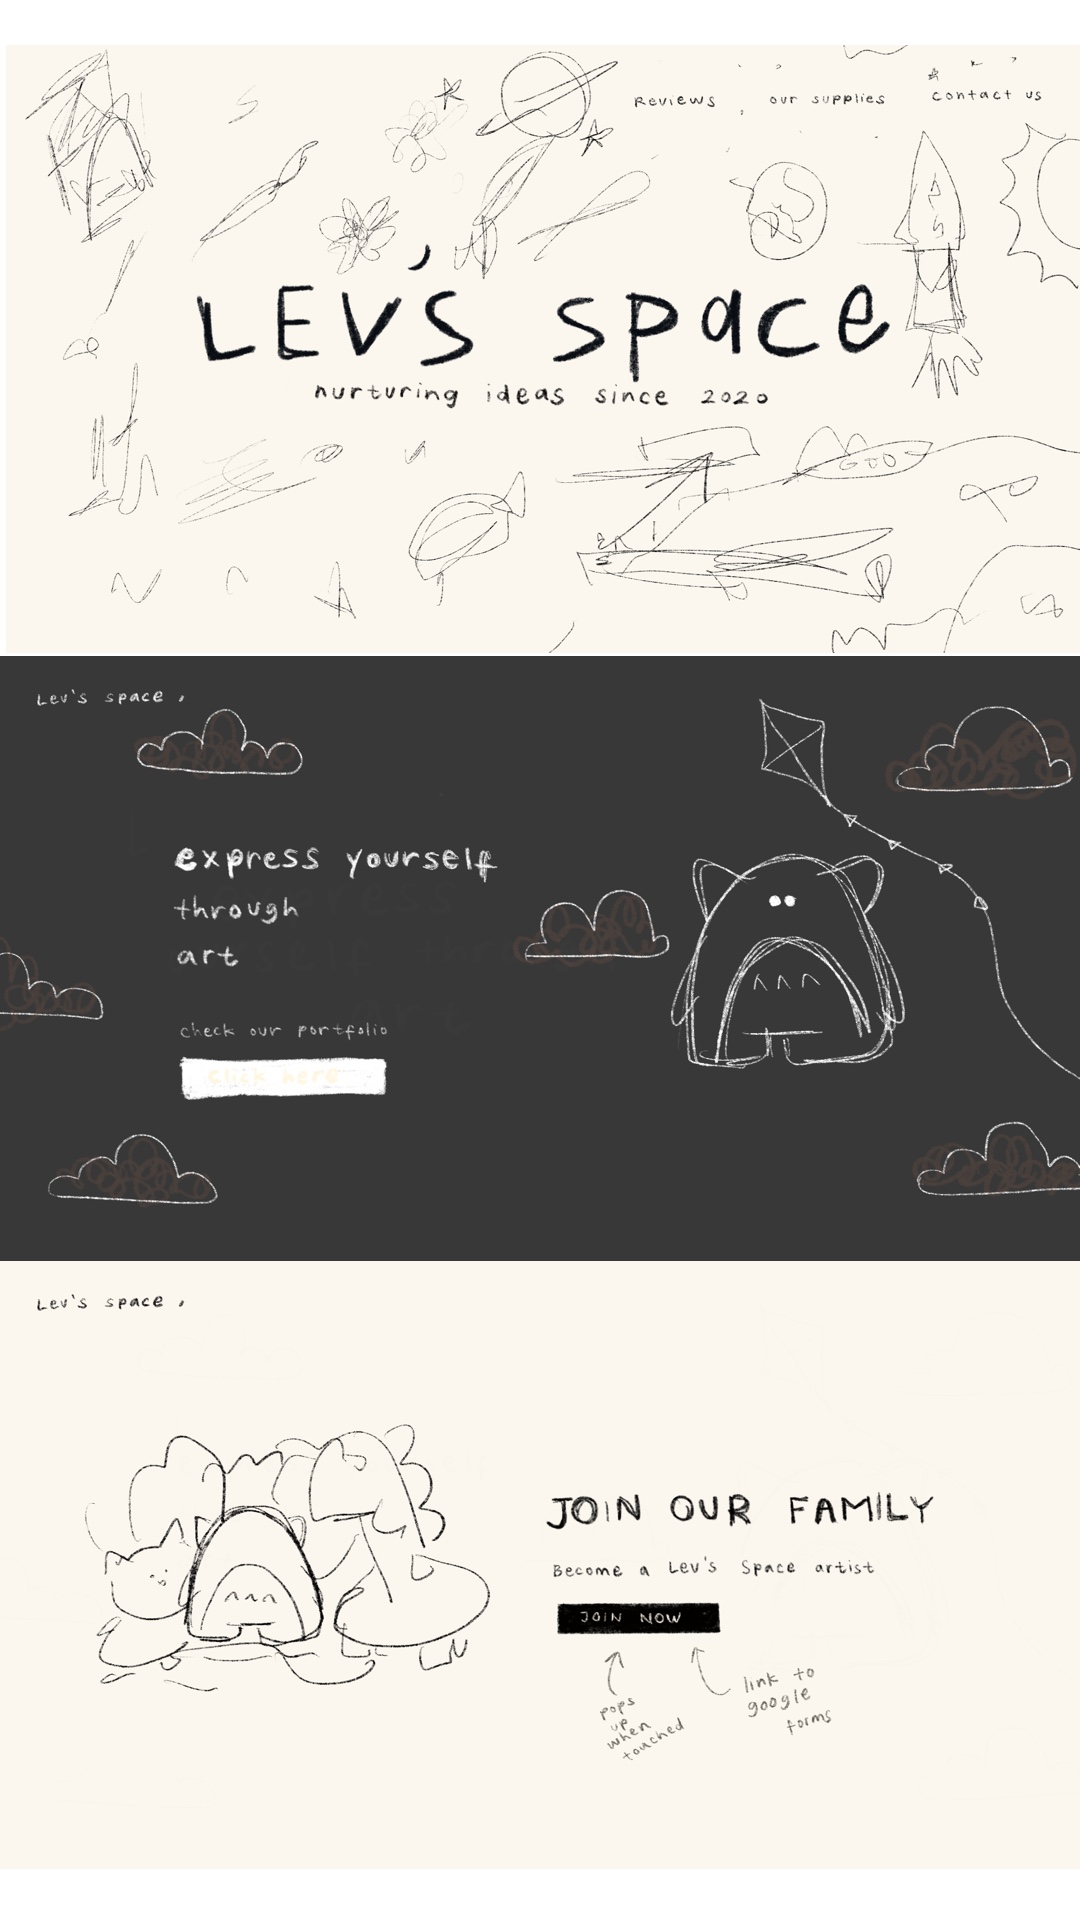 Reviews
our supplies
contact us
LEV'S space
nurturing ideas since 2020
Lev's space
express yourself
through
art
check our portfolio
click here
Lev's space
JOIN OUR FAMILY
Become a Lev's Space artist
JOIN NOW
pops
up
when
touched
link to
google
forms